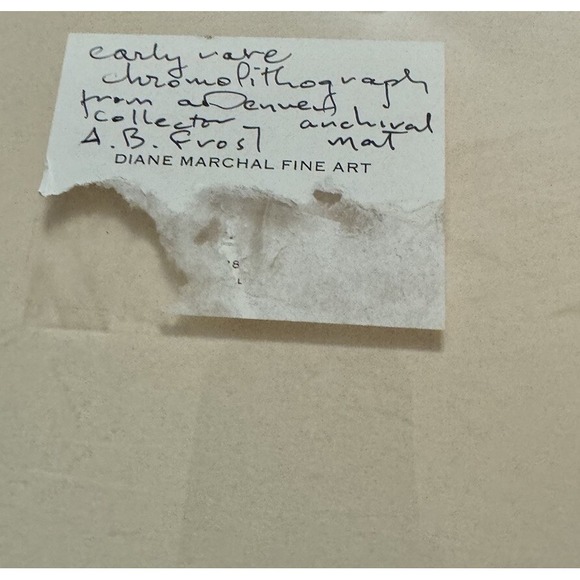 early rare
chromolithograph
from a Denver
collector archival
A.B. Frost mat
DIANE MARCHAL FINE ART
8
L